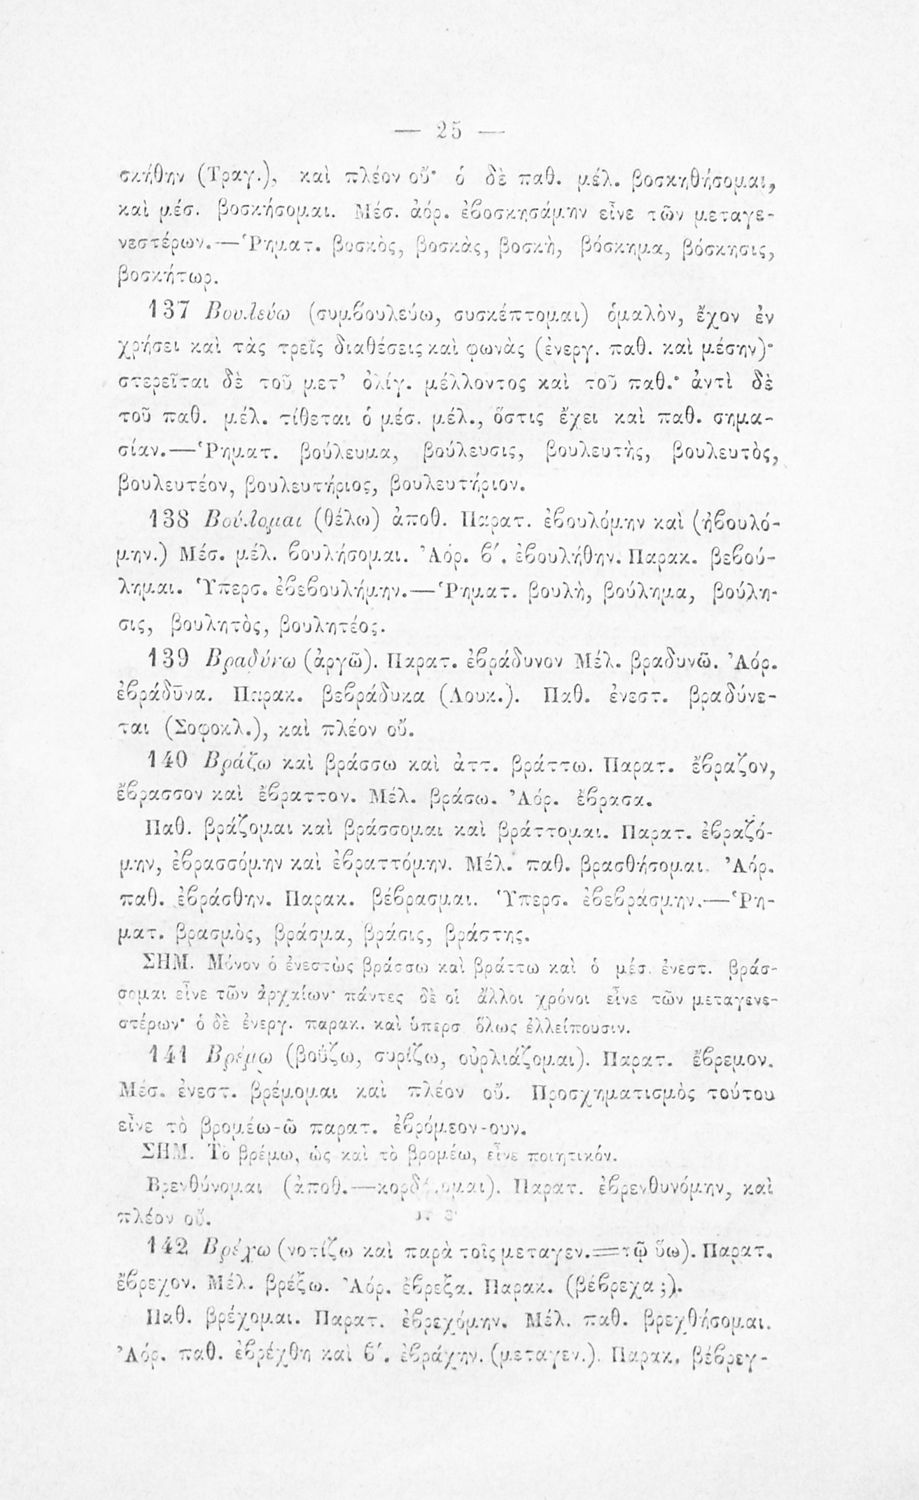 — 25 —
σκήθην (Τραγ.), καὶ πλέον οὔ· ὁ δὲ παθ. μέλ. βοσκηθήσομαι,
καὶ μέσ. βοσκήσομαι. Μέσ. ἀόρ. ἐβοσκησάμην εἶνε τῶν μεταγε-
νεστέρων.—Ῥηματ. βοσκὸς, βοσκὰς, βοσκὴ, βόσκημα, βόσκησις,
βοσκήτωρ.
137 Βουλεύω (συμβουλεύω, συσκέπτομαι) ὁμαλὸν, ἔχον ἐν
χρήσει καὶ τὰς τρεῖς διαθέσεις καὶ φωνὰς (ἐνεργ. παθ. καὶ μέσην)·
στερεῖται δὲ τοῦ μετ’ ὀλίγ. μέλλοντος καὶ τοῦ παθ.· ἀντὶ δὲ
τοῦ παθ. μέλ. τίθεται ὁ μέσ. μέλ., ὅστις ἔχει καὶ παθ. σημα-
σίαν.—Ῥηματ. βούλευμα, βούλευσις, βουλευτὴς, βουλευτὸς,
βουλευτέον, βουλευτήριος, βουλευτήριον.
138 Βούλομαι (θέλω) ἀποθ. Παρατ. ἐβουλόμην καὶ (ἠβουλό-
μην.) Μέσ. μέλ. βουλήσομαι. Ἀόρ. β΄. ἐβουλήθην. Παρακ. βεβού-
λημαι. Ὑπερσ. ἐβεβουλήμην.—Ῥηματ. βουλὴ, βούλημα, βούλη-
σις, βουλητὸς, βουλητέος.
139 Βραδύνω (ἀργῶ). Παρατ. ἐβράδυνον Μέλ. βραδυνῶ. Ἀόρ.
ἐβράδῦνα. Παρακ. βεβράδυκα (Λουκ.). Παθ. ἐνεστ. βραδύνε-
ται (Σοφοκλ.), καὶ πλέον οὔ.
140 Βράζω καὶ βράσσω καὶ ἀττ. βράττω. Παρατ. ἔβραζον,
ἔβρασσον καὶ ἔβραττον. Μέλ. βράσω. Ἀόρ. ἔβρασα.
Παθ. βράζομαι καὶ βράσσομαι καὶ βράττομαι. Παρατ. ἐβραζό-
μην, ἐβρασσόμην καὶ ἐβραττόμην. Μέλ. παθ. βρασθήσομαι. Ἀόρ.
παθ. ἐβράσθην. Παρακ. βέβρασμαι. Ὑπερσ. ἐβεβράσμην.—Ῥη-
ματ. βρασμὸς, βράσμα, βράσις, βράστης.
ΣΗΜ. Μόνον ὁ ἐνεστὼς βράσσω καὶ βράττω καὶ ὁ μέσ. ἐνεστ. βράσ-
σομαι εἶνε τῶν ἀρχαίων· πάντες δὲ οἱ ἄλλοι χρόνοι εἶνε τῶν μεταγενε-
στέρων· ὁ δὲ ἐνεργ. παρακ. καὶ ὑπερσ ὅλως ἐλλείπουσιν.
141 Βρέμω (βοΰζω, συρίζω, οὐρλιάζομαι). Παρατ. ἔβρεμον.
Μέσ. ἐνεστ. βρέμομαι καὶ πλέον οὔ. Προσχηματισμὸς τούτου
εἶνε τὸ βρομέω-ῶ παρατ. ἐβρόμεον-ουν.
ΣΗΜ. Τὸ βρέμω, ὡς καὶ τὸ βρομέω, εἶνε ποιητικόν.
Βρενθύνομαι (ἀποθ.— Παρατ. ἐβρενθυνόμην, καὶ
πλέον οὔ.
142 Βρέχω (νοτίζω καὶ παρὰ τοῖς μεταγεν.=τῷ ὕω). Παρατ.
ἔβρεχον. Μέλ. βρέξω. Ἀόρ. ἔβρεξα. Παρακ. (βέβρεχα;).
Παθ. βρέχομαι. Παρατ. ἐβρεχόμην. Μέλ. παθ. βρεχθήσομαι.
Ἀόρ. παθ. ἐβρέχθη καὶ β΄. ἐβράχην. (μεταγεν.). Παρακ. βέβρεγ-